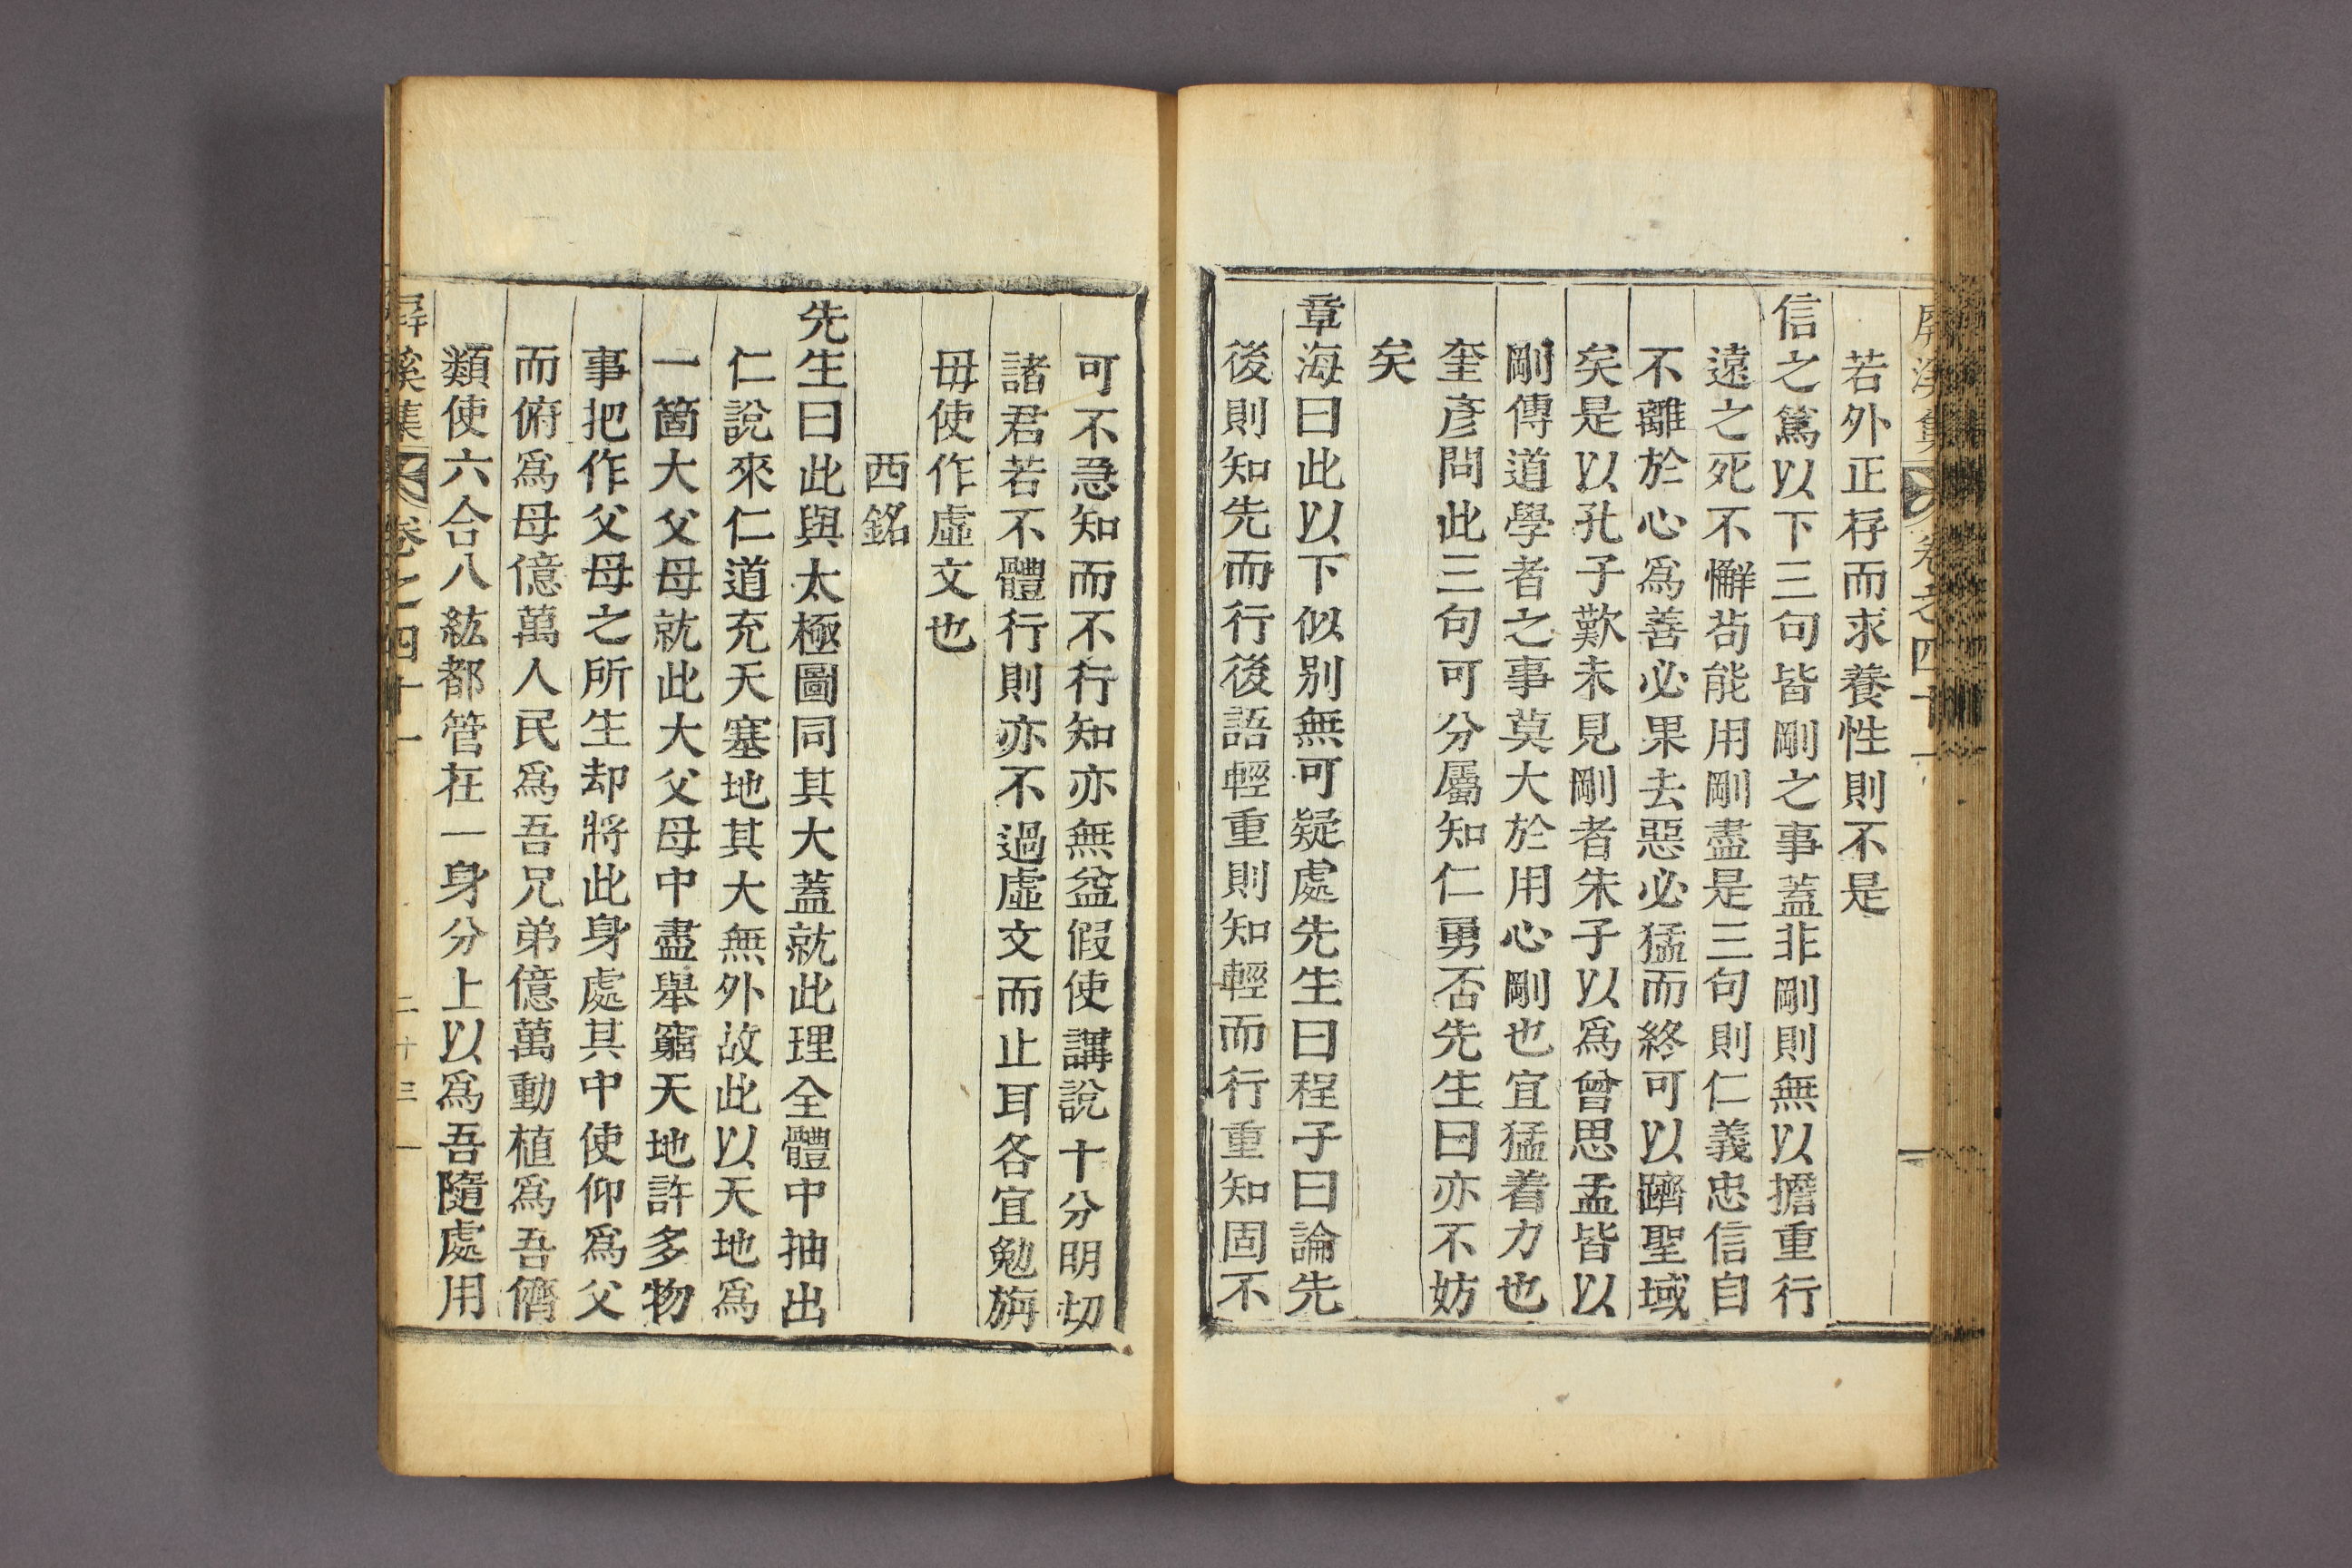 屛溪集 卷之四十一
若外正存而求養性則不是
信之篤以下三句皆剛之事蓋非剛則無以擔重行
遠之死不懈苟能用剛盡是三句則仁義忠信自
不離於心爲善必果去惡必猛而終可以躋聖域
矣是以孔子歎未見剛者朱子以爲曾思孟皆以
剛傳道學者之事莫大於用心剛也宜猛着力也
奎彦問此三句可分屬知仁勇否先生曰亦不妨
矣
章海曰此以下似別無可疑處先生曰程子曰論先
後則知先而行後語輕重則知輕而行重知固不
可不急知而不行知亦無益假使講說十分明切
諸君若不體行則亦不過虛文而止耳各宜勉旃
毋使作虛文也
西銘
先生曰此與太極圖同其大蓋就此理全體中抽出
仁說來仁道充天塞地其大無外故此以天地爲
一箇大父母就此大父母中盡擧窮天地許多物
事把作父母之所生却將此身處其中使仰爲父
而俯爲母億萬人民爲吾兄弟億萬動植爲吾儕
類使六合八紘都管在一身分上以爲吾隨處用
屛溪集 卷之四十一 二十三